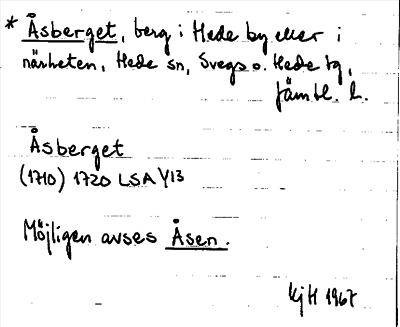 * Åsberget, berg i Hede by eller i
närheten, Hede sn, Svegs o. Hede tg,
Jämtl. l.
Åsberget
(1710) 1720 LSA Y13
Möjligen avses Åsen.
KjH 1967